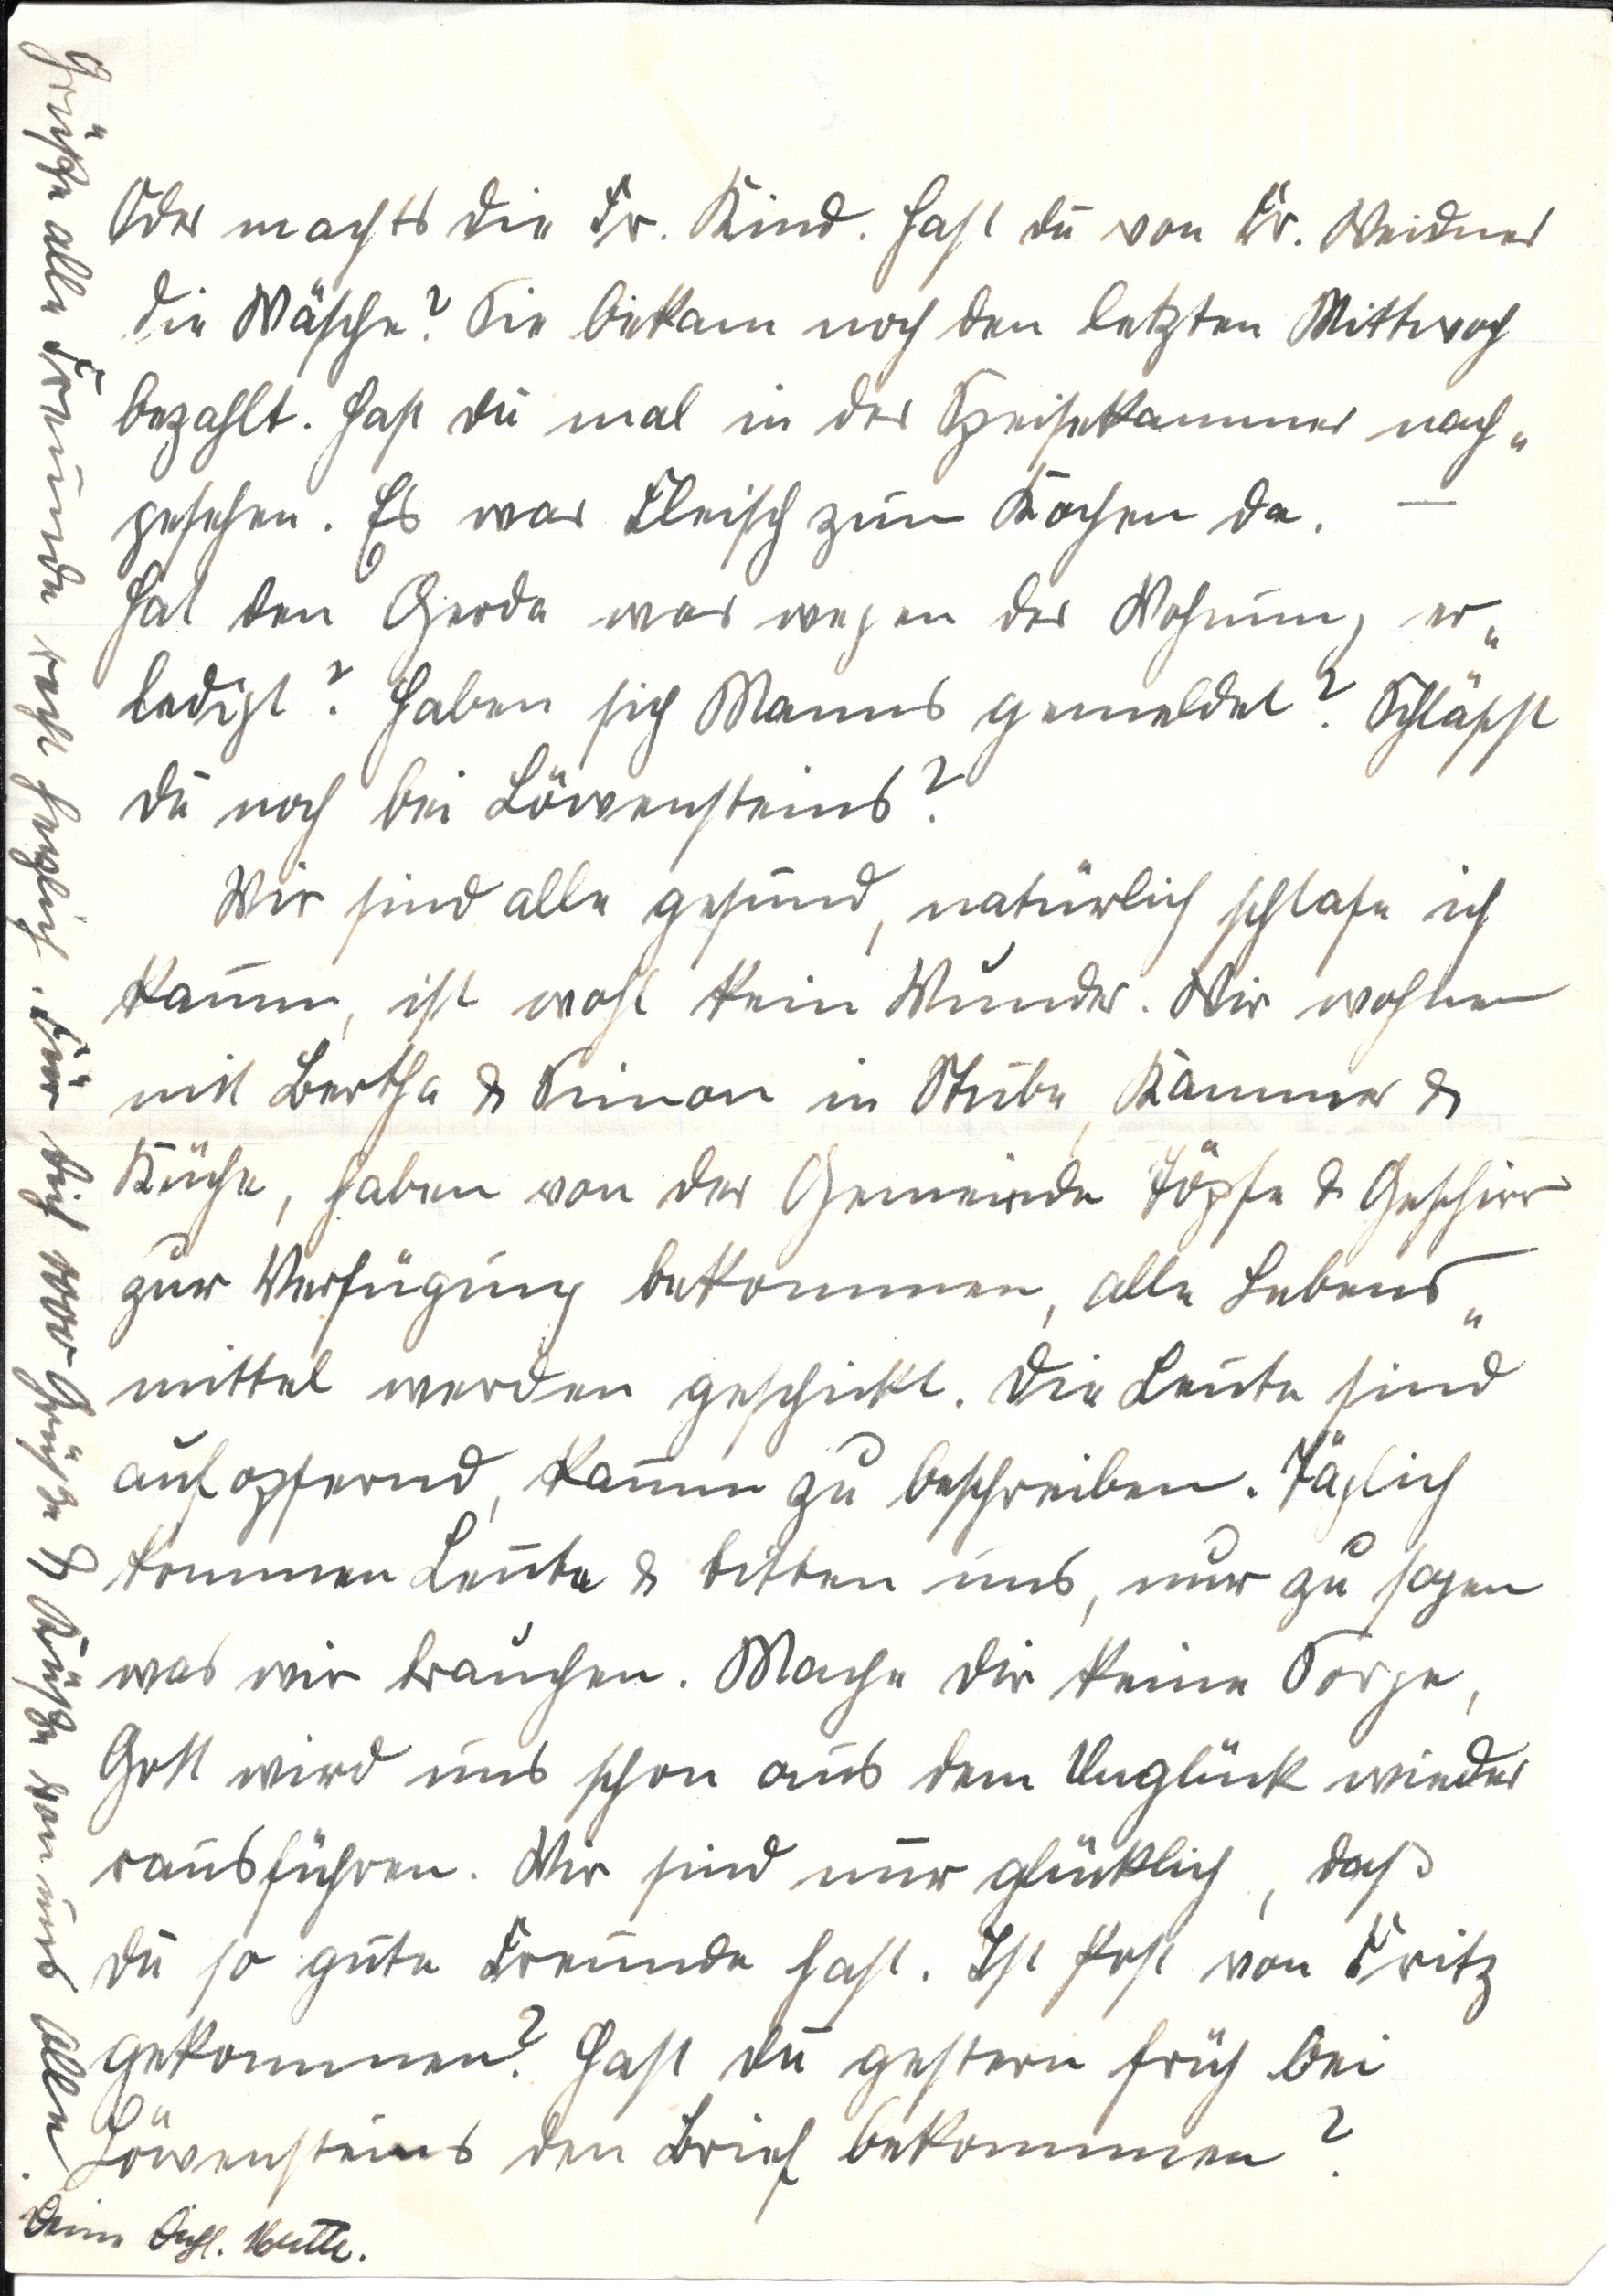 Oder machts die Fr. Kind. Hast du von Fr. Weidner
die Wäsche? Sie bekam noch den letzten Mittwoch
bezahlt. Hast du mal in der Speisekammer nach„
gesehen. Es war Fleisch zum Kochen da. —
Hat den Gerda was wegen der Wohnung er„
ledigt? Haben sich Manns gemeldet? Schläfst
du noch bei Löwensteins?
Wir sind alle gesund, natürlich schlafe ich
kaum, ist wohl kein Wunder. Wir wohnen
mit Bertha & Simon in Stube, Kammer &
Küche, haben von der Gemeinde Töpfe & Geschirr
zur Verfügung bekommen, alle Lebens„
mittel werden geschickt. Die Leute sind
aufopfernd, kaum zu beschreiben. Täglich
kommen Leute & bitten uns, nur zu sagen
was wir brauchen. Mache dir keine Sorge,
Gott wird uns schon aus dem Unglück wieder
rausführen. Wir sind nur glücklich, daß
du so gute Freunde hast. Ist Post von Fritz
gekommen? Hast du gestern früh bei
Löwensteins den Brief bekommen?
Grüße alle Freunde recht herzlich. Für dich Grüße & Küße von uns allen.
Deine Mutter.